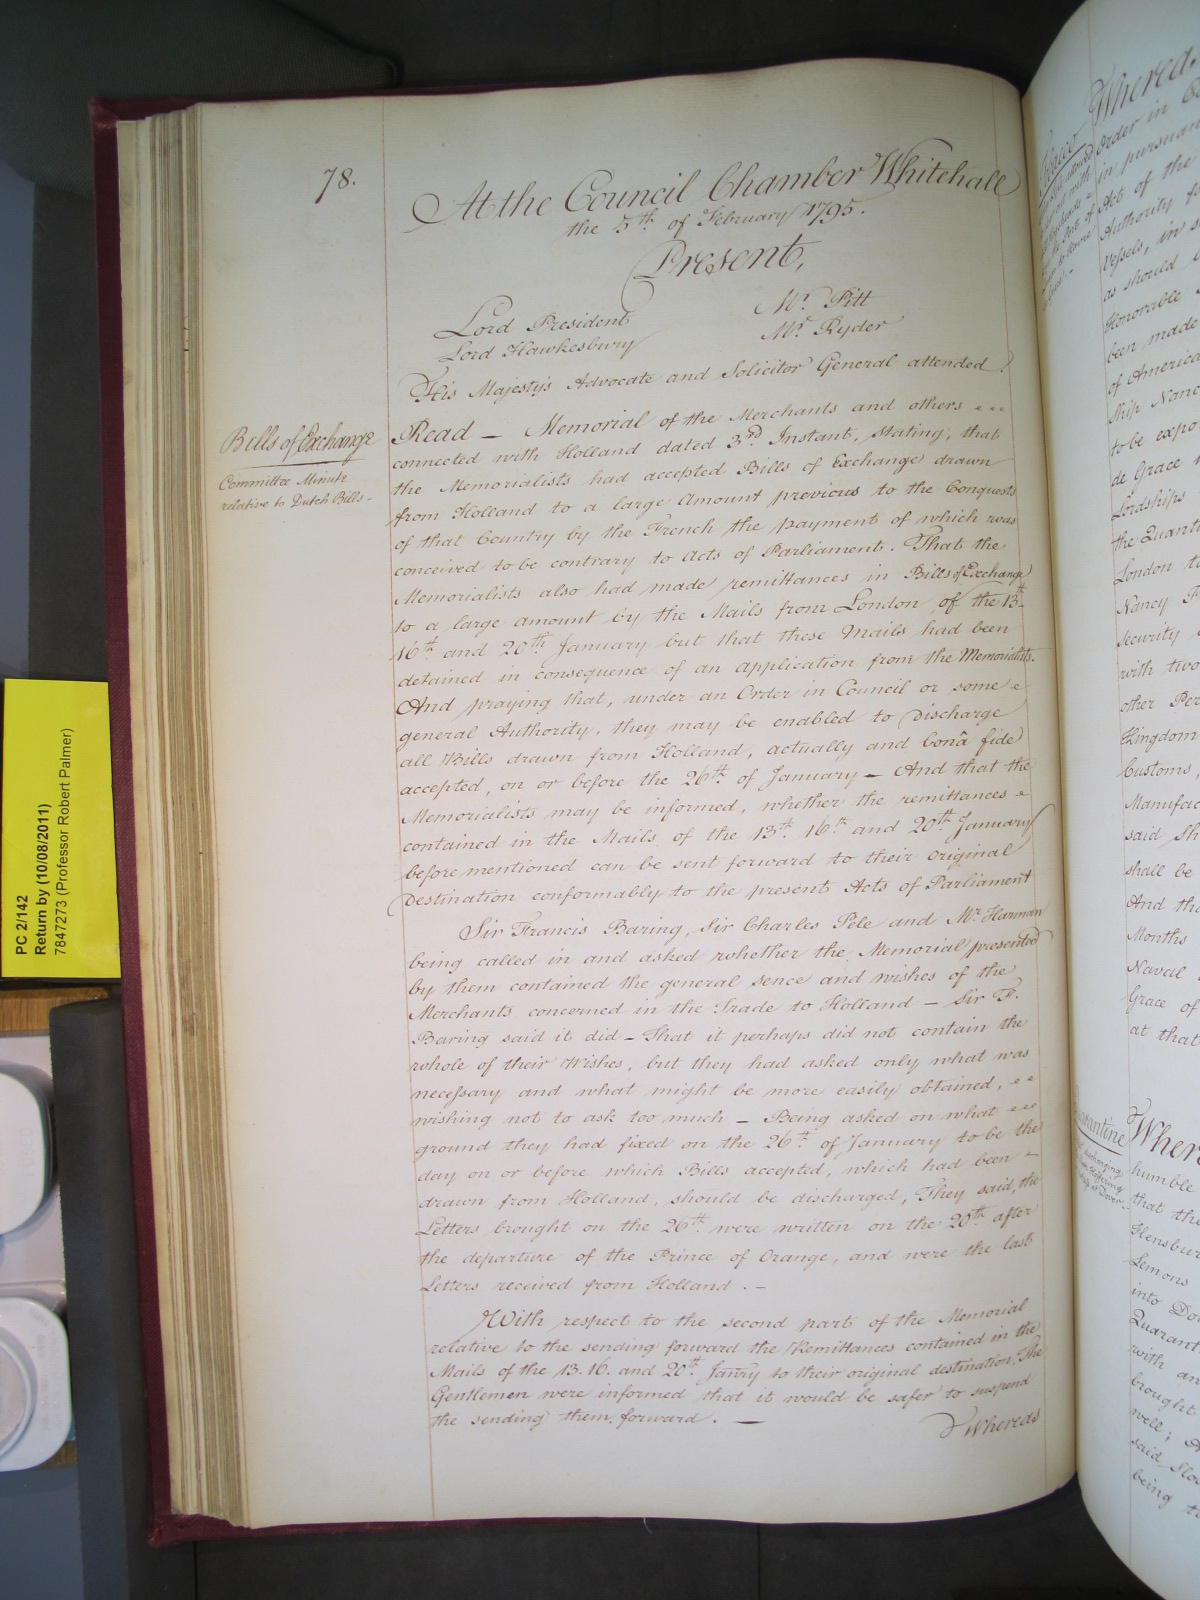 78.
At the Council Chamber Whitehall
the 5th of February 1795.
Present,
Lord President
Mr. Pitt
Lord Hawkesbury
Mr. Ryder
His Majesty's Advocate and Solicitor General attended.
Bills of Exchange
Committee Minute
relative to Dutch Bills -
Read - Memorial of the Merchants and others
connected with Holland dated 3rd Instant, stating, that
the Memorialists had accepted Bills of Exchange drawn
from Holland to a large Amount previous to the Conquests
of that Country by the French the payment of which was
conceived to be contrary to Acts of Parliament. That the
Memorialists also had made remittances in Bills of Exchange
to a large amount by the Mails from London of the 13th
16th and 20th January but that these Mails had been
detained in consequence of an application from the Memorialists.
And praying that, under an Order in Council or some
general Authority, they may be enabled to Discharge
all Bills drawn from Holland, actually and bonâ fide
accepted, on or before the 26th of January - And that the
Memorialists may be informed, whether the remittances
contained in the Mails of the 13th 16th and 20th January
before mentioned can be sent forward to their original
Destination conformably to the present Acts of Parliament
Sir Francis Baring, Sir Charles Pele and Mr. Harman
being called in and asked whether the Memorial presented
by them contained the general sence and wishes of the
Merchants concerned in the Trade to Holland - Sir F.
Baring said it did - That it perhaps did not contain the
whole of their Wishes, but they had asked only what was
necessary and what might be more easily obtained,
wishing not to ask too much - Being asked on what
ground they had fixed on the 26th of January to be the
day on or before which Bills accepted, which had been
drawn from Holland, should be discharged, They said, the
Letters brought on the 26th were written on the 20th after
the departure of the Prince of Orange, and were the last
Letters received from Holland. -
With respect to the second part of the Memorial
relative to the sending forward the Remittances contained in the
Mails of the 13. 16. and 20th Janry to their original destination, The
Gentlemen were informed that it would be safer to suspend
the sending them forward. -
Whereas
PC 2/142
Return by (10/08/2011)
7847273 (Professor Robert Palmer)
Wherea
Order in Co
in pursuan
Act of the
Authority
Vessels, in
as should
Honorable
been made
of America
Ship Nanc
to be expo
de Grace
Lordships
the Quanti
London to
Nancy
Security
with two
other Per
Kingdom
Customs,
Manufac
said Sh
shall be
And tha
Months
Naval
Grace of
at that
Wher
humble
that the
Flensbur
Lemons
into Do
Quarant
with an
brought
well;
said Slo
being to